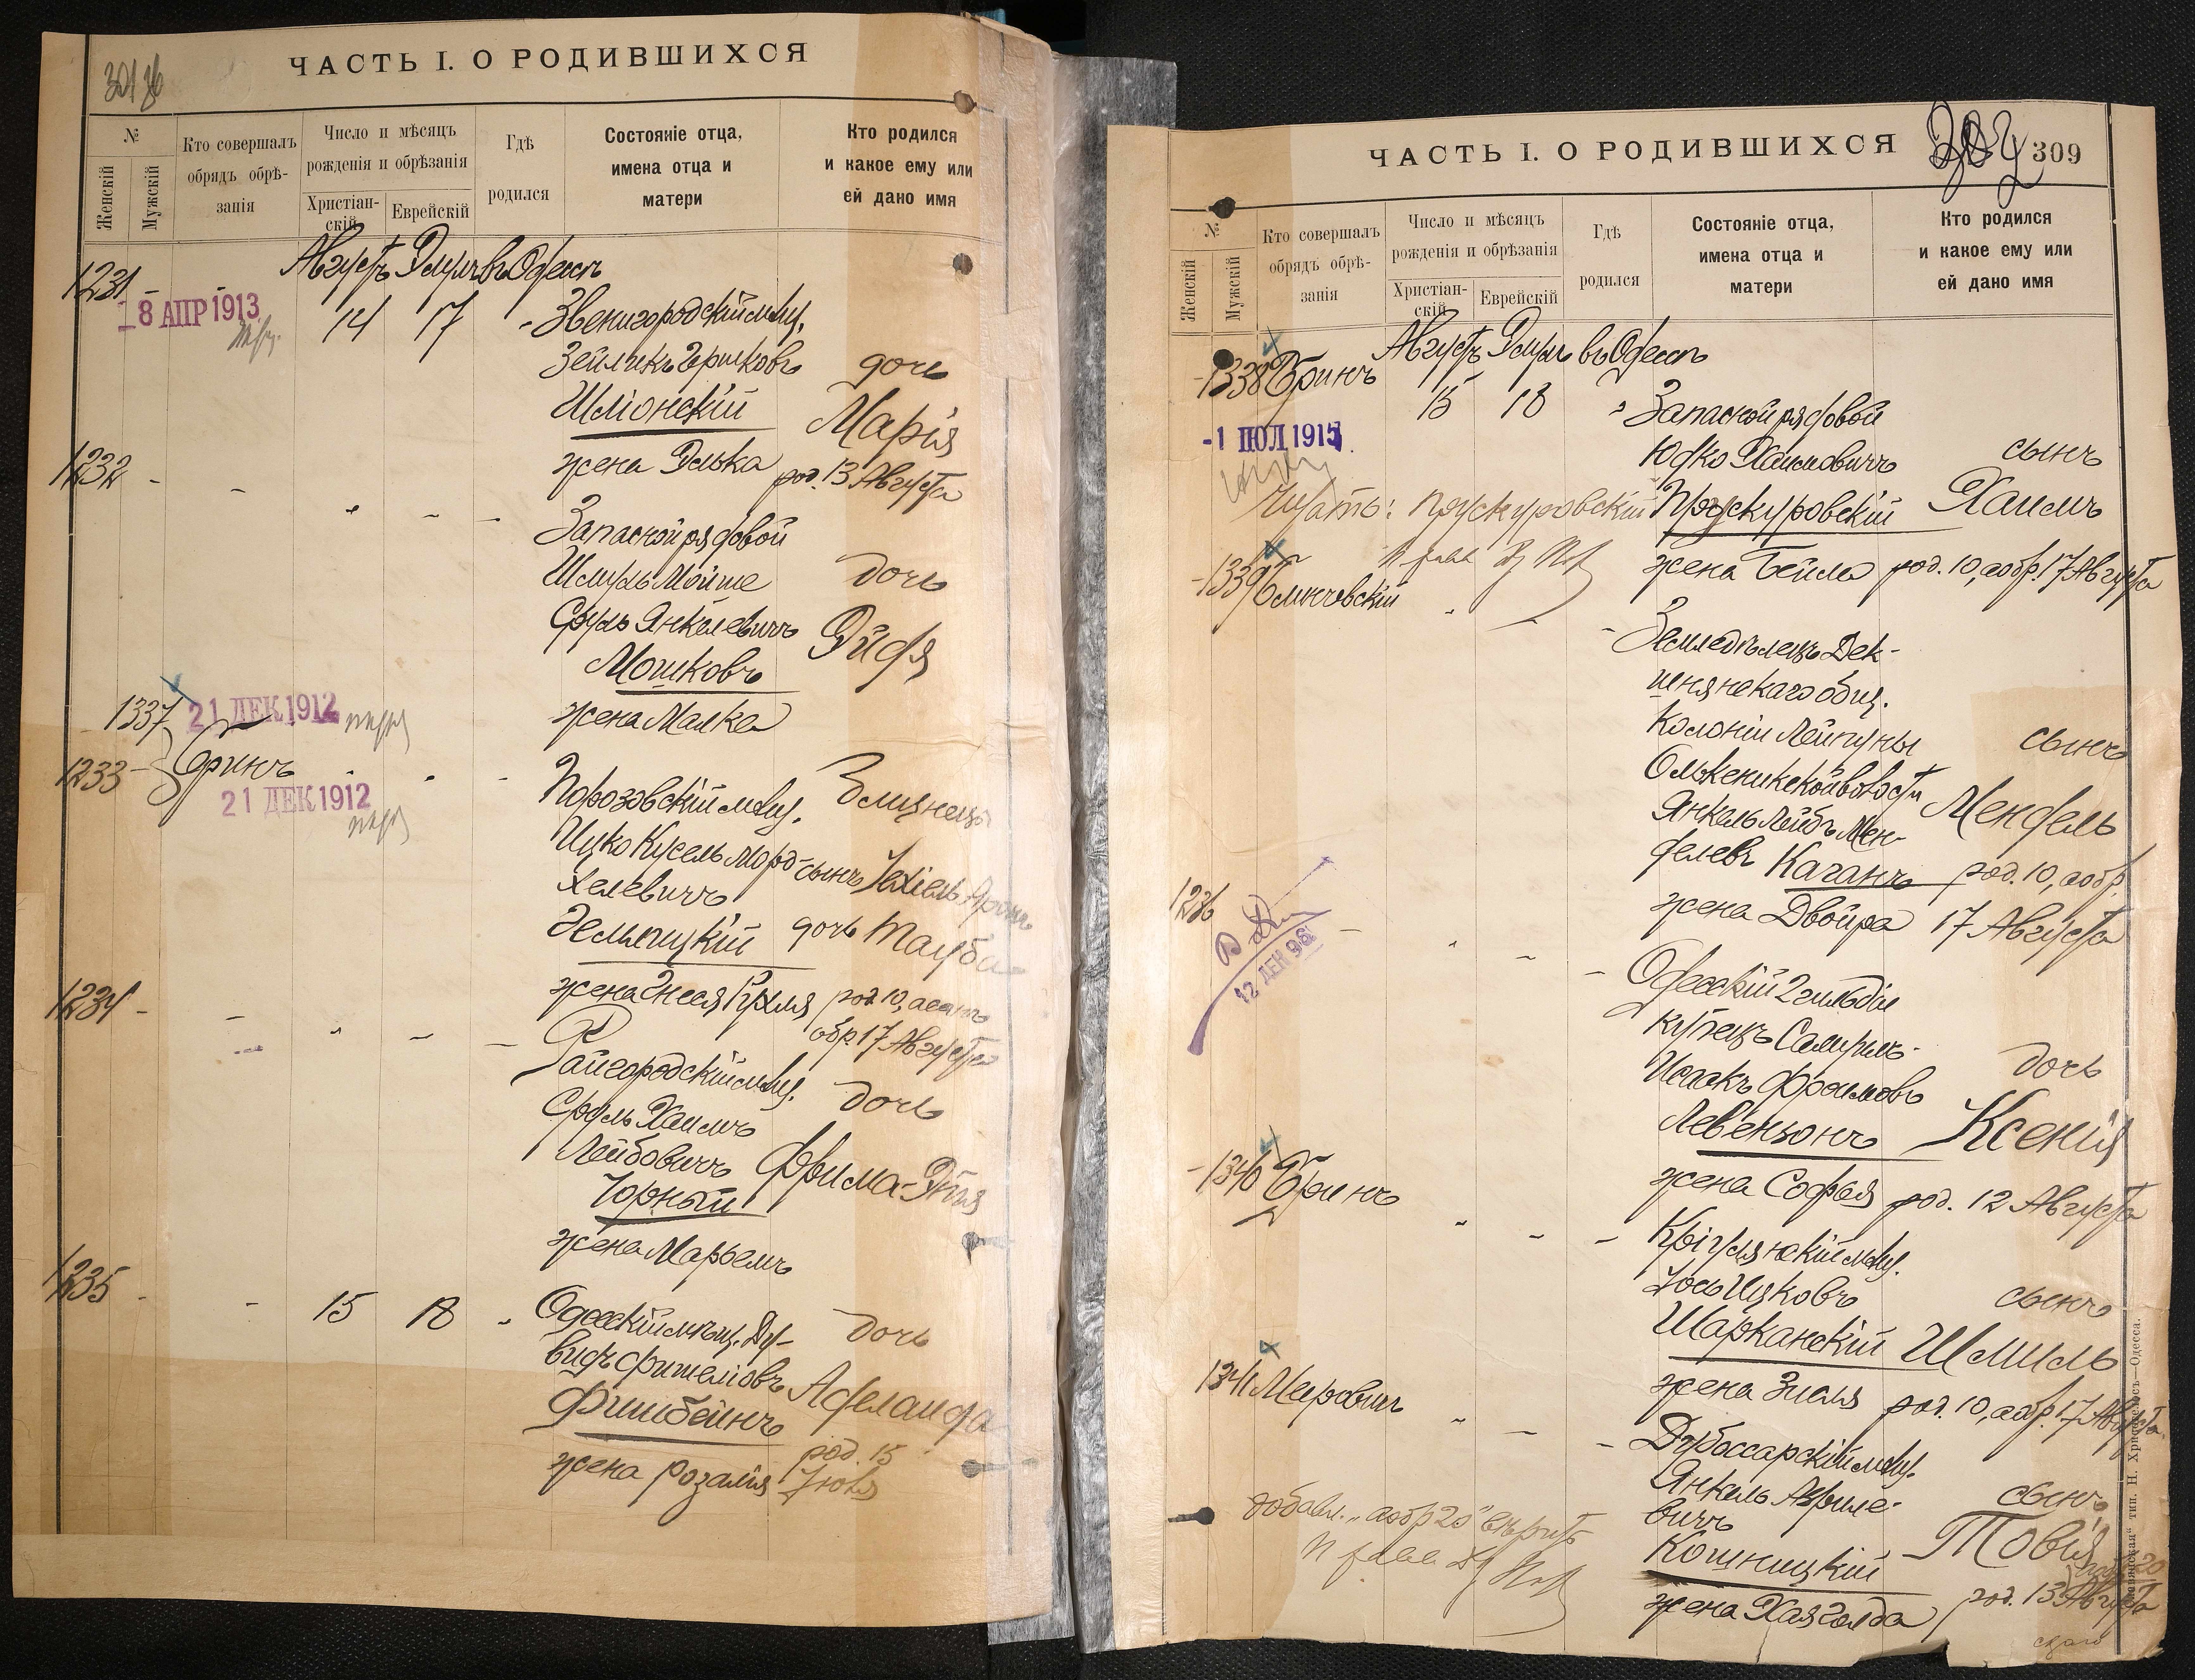 ЧАСТЬ I. О РОДИВШИХСЯ
№
Женскій
Мужскій
Кто совершалъ
обрядъ обрѣ-
занія
Число и мѣсяцъ
рожденія и обрѣзанія
Христіан-
скій
Еврейскій
Гдѣ
родился
Состояніе отца,
имена отца и
матери
Кто родился
и какое ему или
ей дано имя
Августъ Элулъ въ Одессѣ
1231
18 АПР 1913
14 17
Звенигородскій мѣщ.
Зейликъ Гершковъ
Шліонскій
жена Элька
дочь
Марія
род. 13 Августа
1232
Запасной рядовой
Шмуль Мойше
Сруль Янкелевичъ
Мошковъ
жена Малка
дочь
Эйдя
1337
21 ДЕК 1912
1233
Бринъ
21 ДЕК 1912
Порозовскій мѣщ.
Ицко Кусель Морд-
хелевичъ
жена Гнеся
Близнецы
сынъ Іехіель
дочь Тауба
род. 10,
обр. 17 Августа
1234
Райгородскій мѣщ.
Сруль Хаимъ
Лейбовичъ
Чорный
жена Марьемъ
дочь
Фрима-Этя
1235
15 18
Одесскій мѣщ. Да-
видъ Фишелiовъ
Фишбейнъ
жена Розалія
дочь
Аделаида
род. 15
Іюля
ЧАСТЬ I. О РОДИВШИХСЯ
309
№
Женскій
Мужскій
Кто совершалъ
обрядъ обрѣ-
занія
Число и мѣсяцъ
рожденія и обрѣзанія
Христіан-
скій
Еврейскій
Гдѣ
родился
Состояніе отца,
имена отца и
матери
Кто родился
и какое ему или
ей дано имя
Августъ Элулъ въ Одессѣ
1338 Бринъ
15 18
-1 ИЮЛ 1915
Запасной рядовой
Юдко Хаимовичъ
Проскуровскій
жена Бейла
сынъ
Хаимъ
род. 10, а обр. 17 Августа
Читать: Проскуровскій
1339
Земледѣлецъ Дек-
шнянскаго общ.
Колоніи Лейпуны
Олькеникской волости
Янкель Лейбъ Мен-
делевъ Каганъ
жена Двойра
сынъ
Мендель
род. 10, а обр.
17 Августа
1236
12 ДЕК
Одесскій 2 гильдіи
купецъ
Исаакъ Фроимовъ
Левензонъ
жена Софья
дочь
Ксенія
род. 12 Августа
1340 Бринъ
Кріулянскій мѣщ.
Іось Ицковъ
Шарканскій
жена Зисля
сынъ
Шмиль
род. 10, а обр. 17 Августа
1341 Меровичъ
Дубоссарскій мѣщ.
Янкель Азриле-
вичъ
Кошницкій
жена Хая Голда
сынъ
Товія
род. 13 Августа
добавл. "а обр 20" вѣрить
тип. Н. Хрисогелосъ—Одесса.